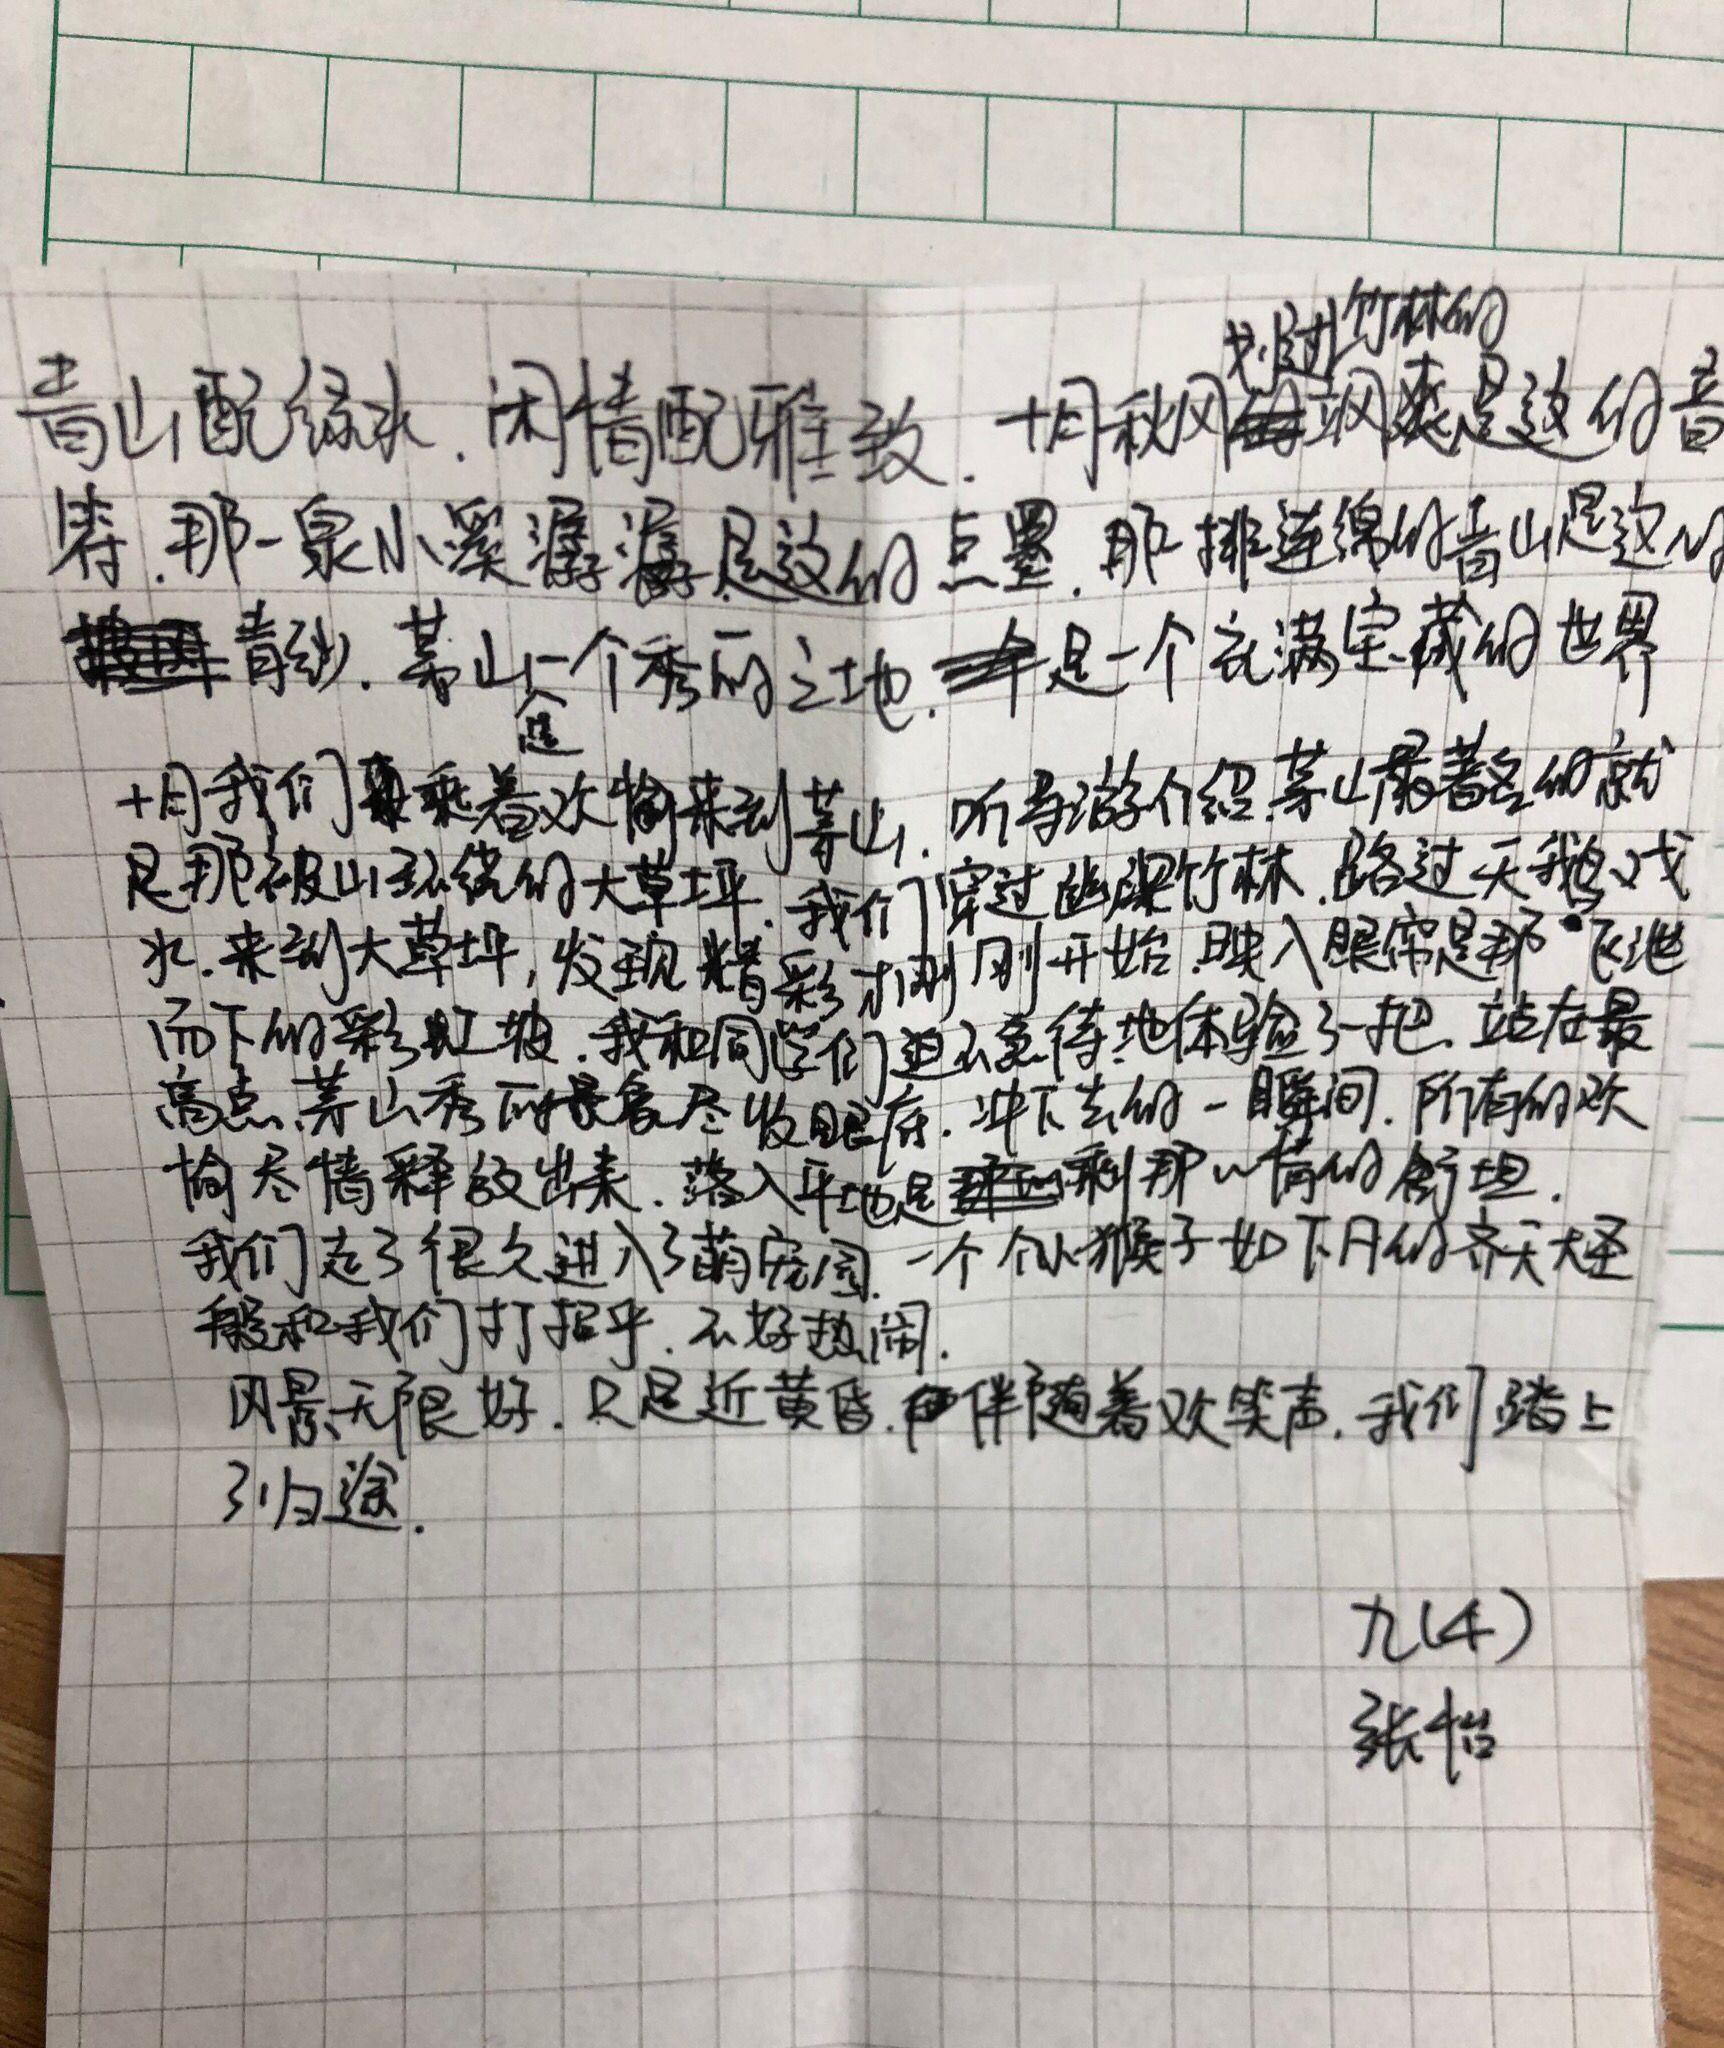 青山配绿水.闲情配雅致.十月秋风划过竹林的飒爽是这的音
符.那一泉小溪潺潺是这的点墨.那一排连绵的青山是这的
青纱.茅山是一个秀丽之地.是一个充满宝藏的世界
十月我们乘着欢愉来到茅山.听导游介绍.茅山最著名的就
是那被山环绕的大草坪.我们穿过幽深竹林.路过天鹅戏
水.来到大草坪,发现精彩才刚刚开始.映入眼帘是那飞泄
而下的彩虹坡.我和同学们迫不急待地体验了一把.站在最
高点.茅山秀丽景象尽收眼底.冲下去的一瞬间.所有的欢
愉尽情释放出来.落入平地是刹那心情的舒坦.
我们走了很久进入了萌宠园.一个个小猴子如下凡的齐天大圣
般和我们打招乎.不好热闹.
风景无限好.只是近黄昏.伴随着欢笑声.我们踏上
了归途.
九(4)
张怡